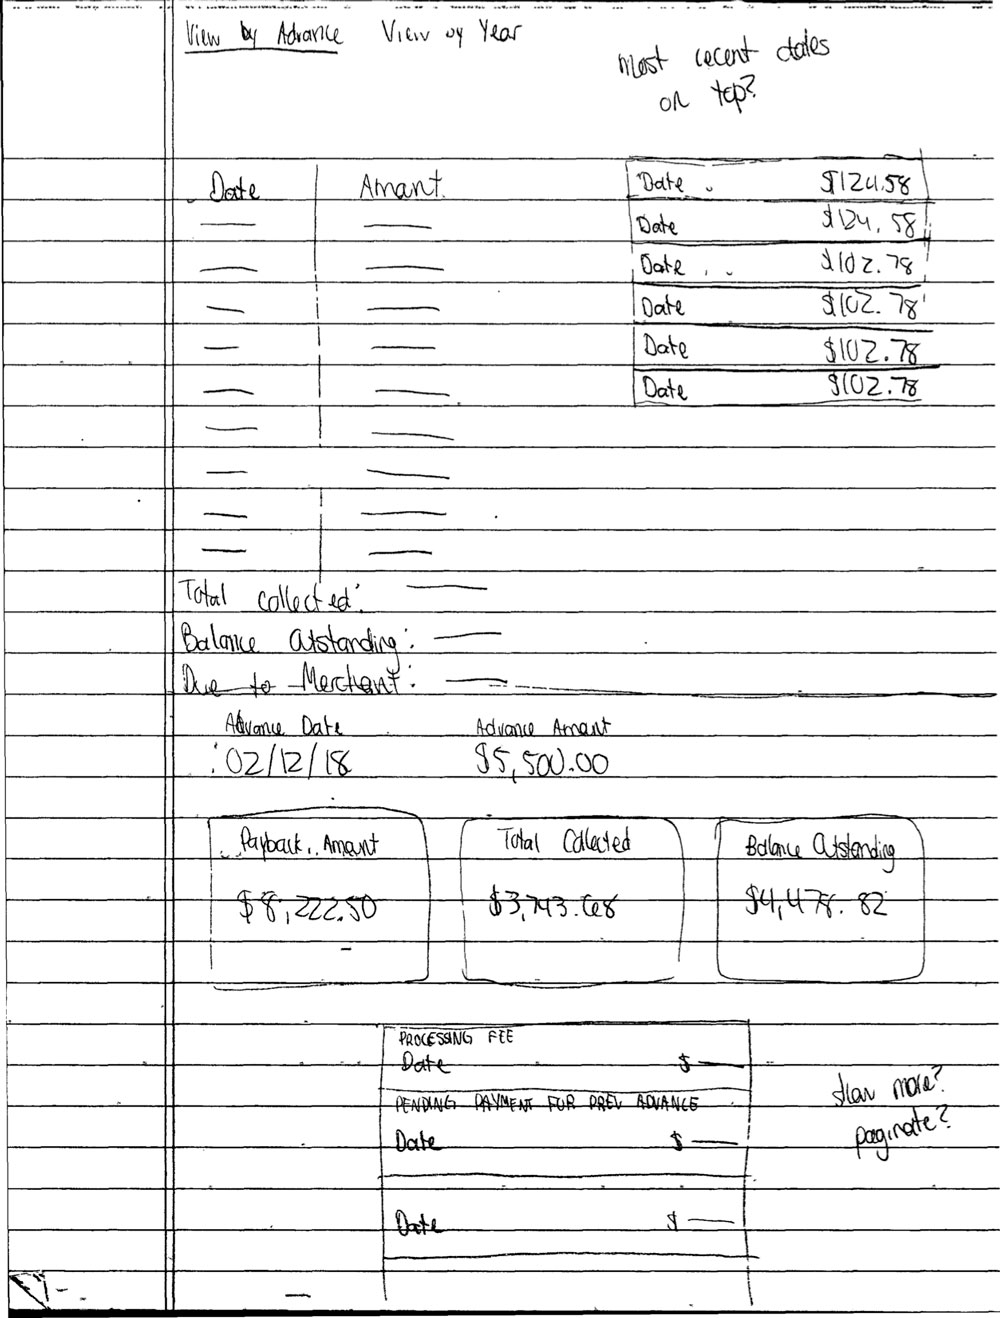 View by Advance View by Year
Most recent dates
on top?
Date Amount
Date $124.58
Date $124.58
Date $102.78
Date $102.78
Date $102.78
Date $102.78
Total collected:
Balance Outstanding:
Due to Merchant:
Advance Date Advance Amount
02/12/18 $5,500.00
Payback Amount Total Collected Balance Outstanding
$8,222.50 $3,743.68 $4,478.82
PROCESSING FEE
Date $
PENDING PAYMENT FOR PREV ADVANCE
Date $
Show more?
paginate?
Date $